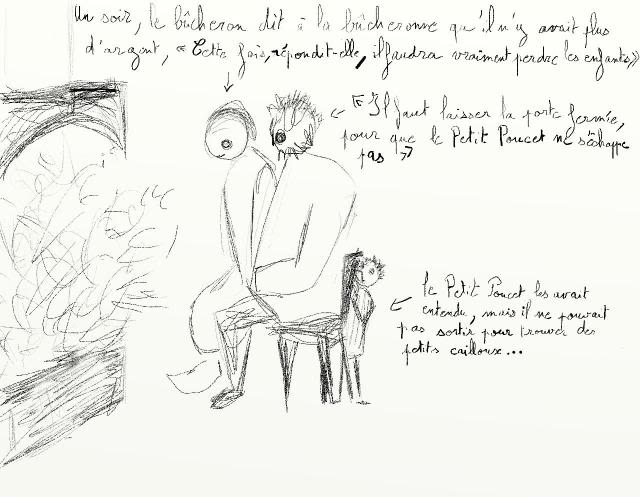 Un soir, le bûcheron dit à la bûcheronne qu'il n'y avait plus
d'argent, « Cette fois, répondit-elle, il faudra vraiment perdre les enfants»
« Il faut laisser la porte fermée,
pour que le Petit Poucet ne s'échappe
pas »
le Petit Poucet les avait
entendu, mais il ne pouvait
pas sortir pour trouver des
petits cailloux...